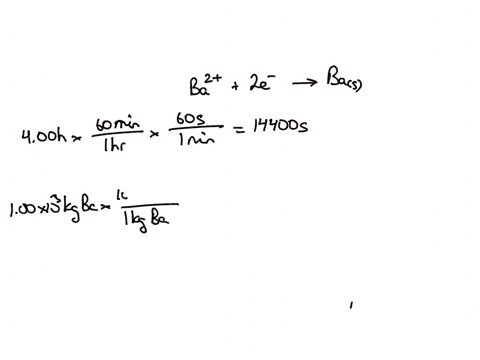 Ba²⁺ + 2e⁻ → Ba(s)
4.00h × 60min/1hr × 60s/1min = 14400s
1.00×10³kg Ba × 10/1kg Ba